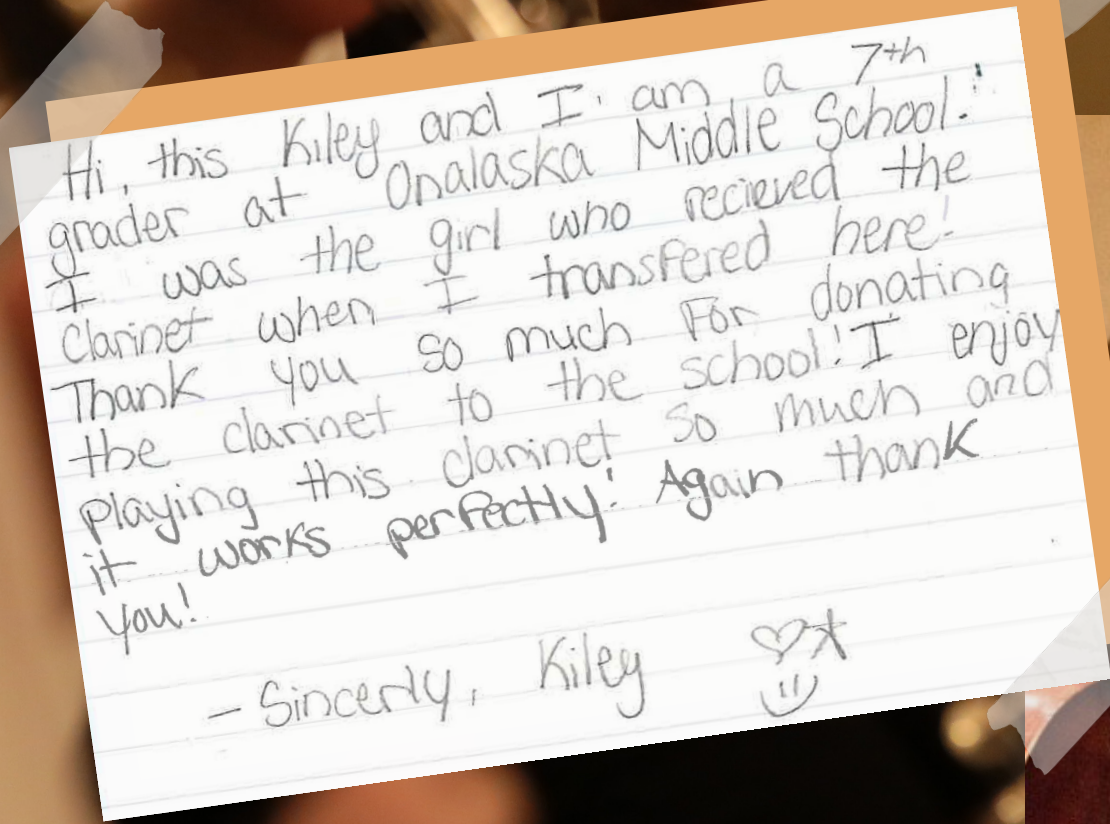 Hi, this Kiley and I am a 7th
grader at Onalaska Middle School!
I was the girl who recieved the
clarinet when I transfered here!
Thank you so much for donating
the clarinet to the school! I enjoy
playing this clarinet so much and
it works perfectly! Again thank
you!
- Sincerly, Kiley